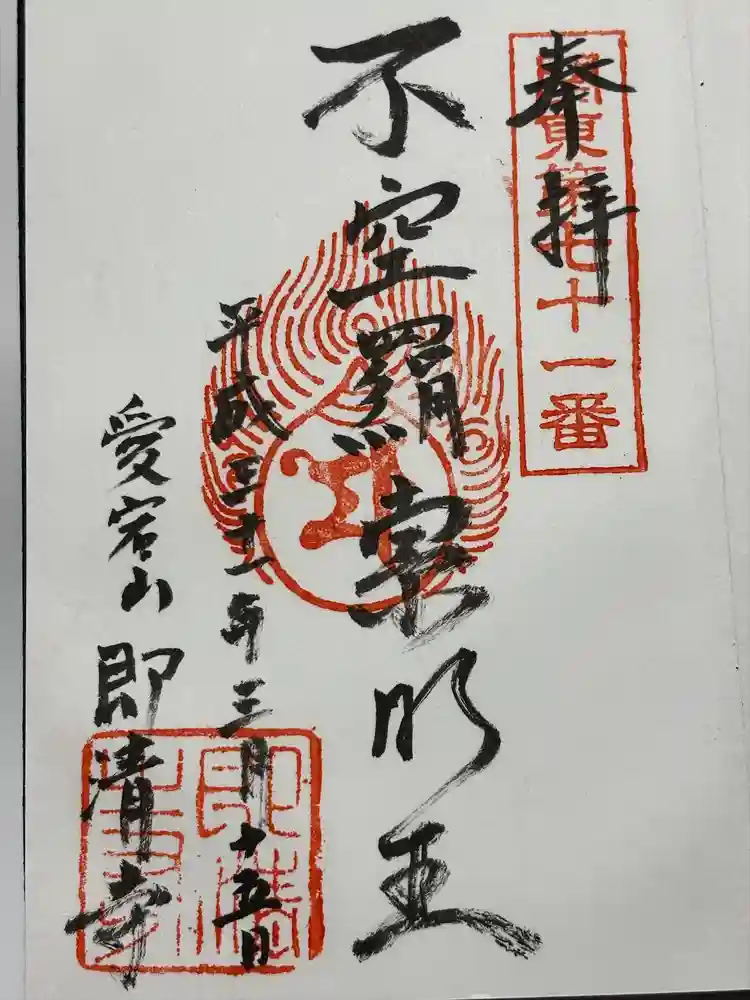 奉拝
關東第七十一番
不空羂索明王
平成三十一年三月十五日
愛宕山
即清寺
即清寺